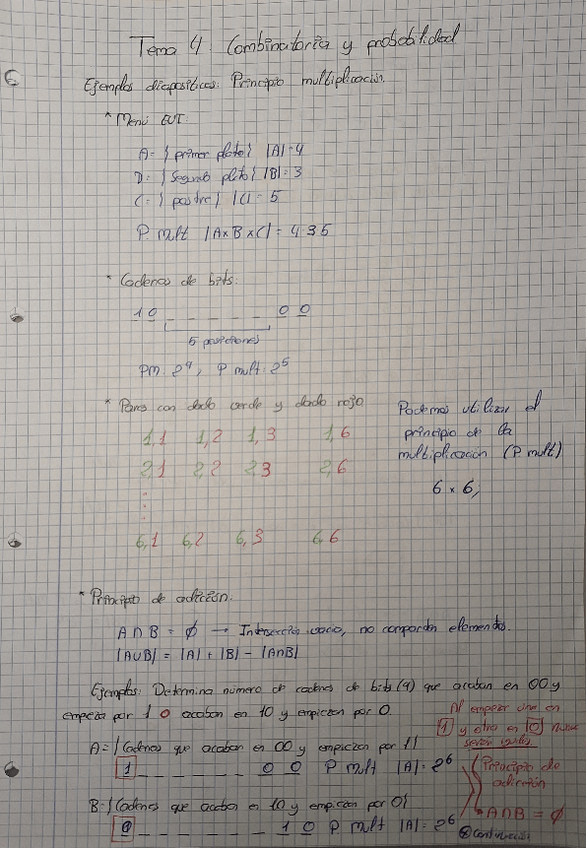 Tema 4: Combinatoria y probabilidad
Ejemplos diapositivas: Principio multiplicación.
* Menú EUT:
A = { primer plato } |A| = 4
D = { Segundo plato } |B| = 3
C = { postre } |C| = 5
P. mult |A x B x C| = 4·3·5
* Cadenas de bits:
1 0 _ _ _ _ _ 0 0
5 posiciones
PM: 2⁹, P mult: 2⁵
* Pares con dado verde y dado rojo
1,1 1,2 1,3 1,6
2,1 2,2 2,3 2,6
6,1 6,2 6,3 6,6
Podemos utilizar el
principio de la
multiplicación (P. mult)
6 x 6;
* Principio de adición:
A∩B = ∅ → Intersección vacía, no comparten elementos.
|A∪B| = |A| + |B| - |A∩B|
Ejemplos: Determina número de cadenas de bits (9) que acaban en 00 y
empieza por 1 o acaban en 10 y empiezan por 0.
A = { Cadenas que acaban en 00 y empiezan por 1 }
1 _ _ _ _ _ _ 0 0 P mult |A| = 2⁶
B = { Cadenas que acaban en 10 y empiezan por 0 }
0 _ _ _ _ _ _ 1 0 P mult |A| = 2⁶
Al empezar una en
1 y otra en 0 nunca
serán iguales
Principio de
adición
A∩B = ∅
continuación